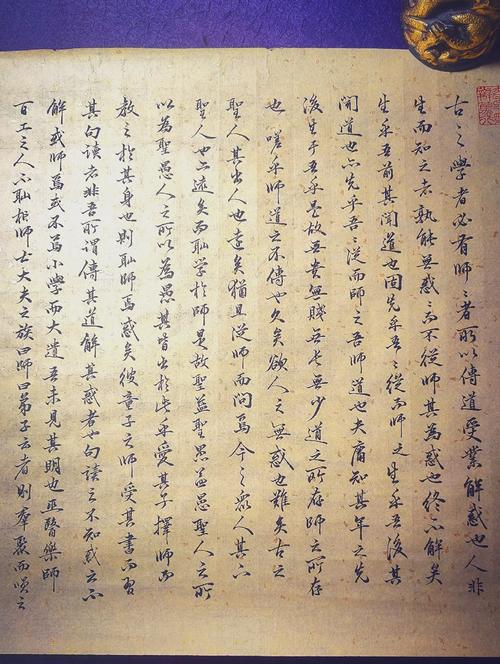 古之學者必有師〻者所以傳道受業解惑也人非
生而知之者孰能無惑〻而不從師其為惑也終不解矣
生乎吾前其聞道也固先乎吾〻從而師之生乎吾後其
聞道也亦先乎吾〻從而師之吾師道也夫庸知其年之先
後生于吾乎是故無貴無賤無長無少道之所存師之所存
也嗟乎師道之不傳也久矣欲人之無惑也難矣古之
聖人其出人也遠矣猶且從師而問焉今之衆人其下
聖人也亦遠矣而耻学於師是故聖益聖愚益愚聖人之所
以為聖愚人之所以為愚其皆出於此乎愛其子擇師而
教之於其身也則耻師焉惑矣彼童子之師受其書而習
其句讀者非吾所謂傳其道解其惑者也句讀之不知惑之不
解或師焉或不焉小學而大遺吾未見其明也巫醫樂師
百工之人不耻相師士大夫之族曰師曰弟子云者則羣聚而笑之